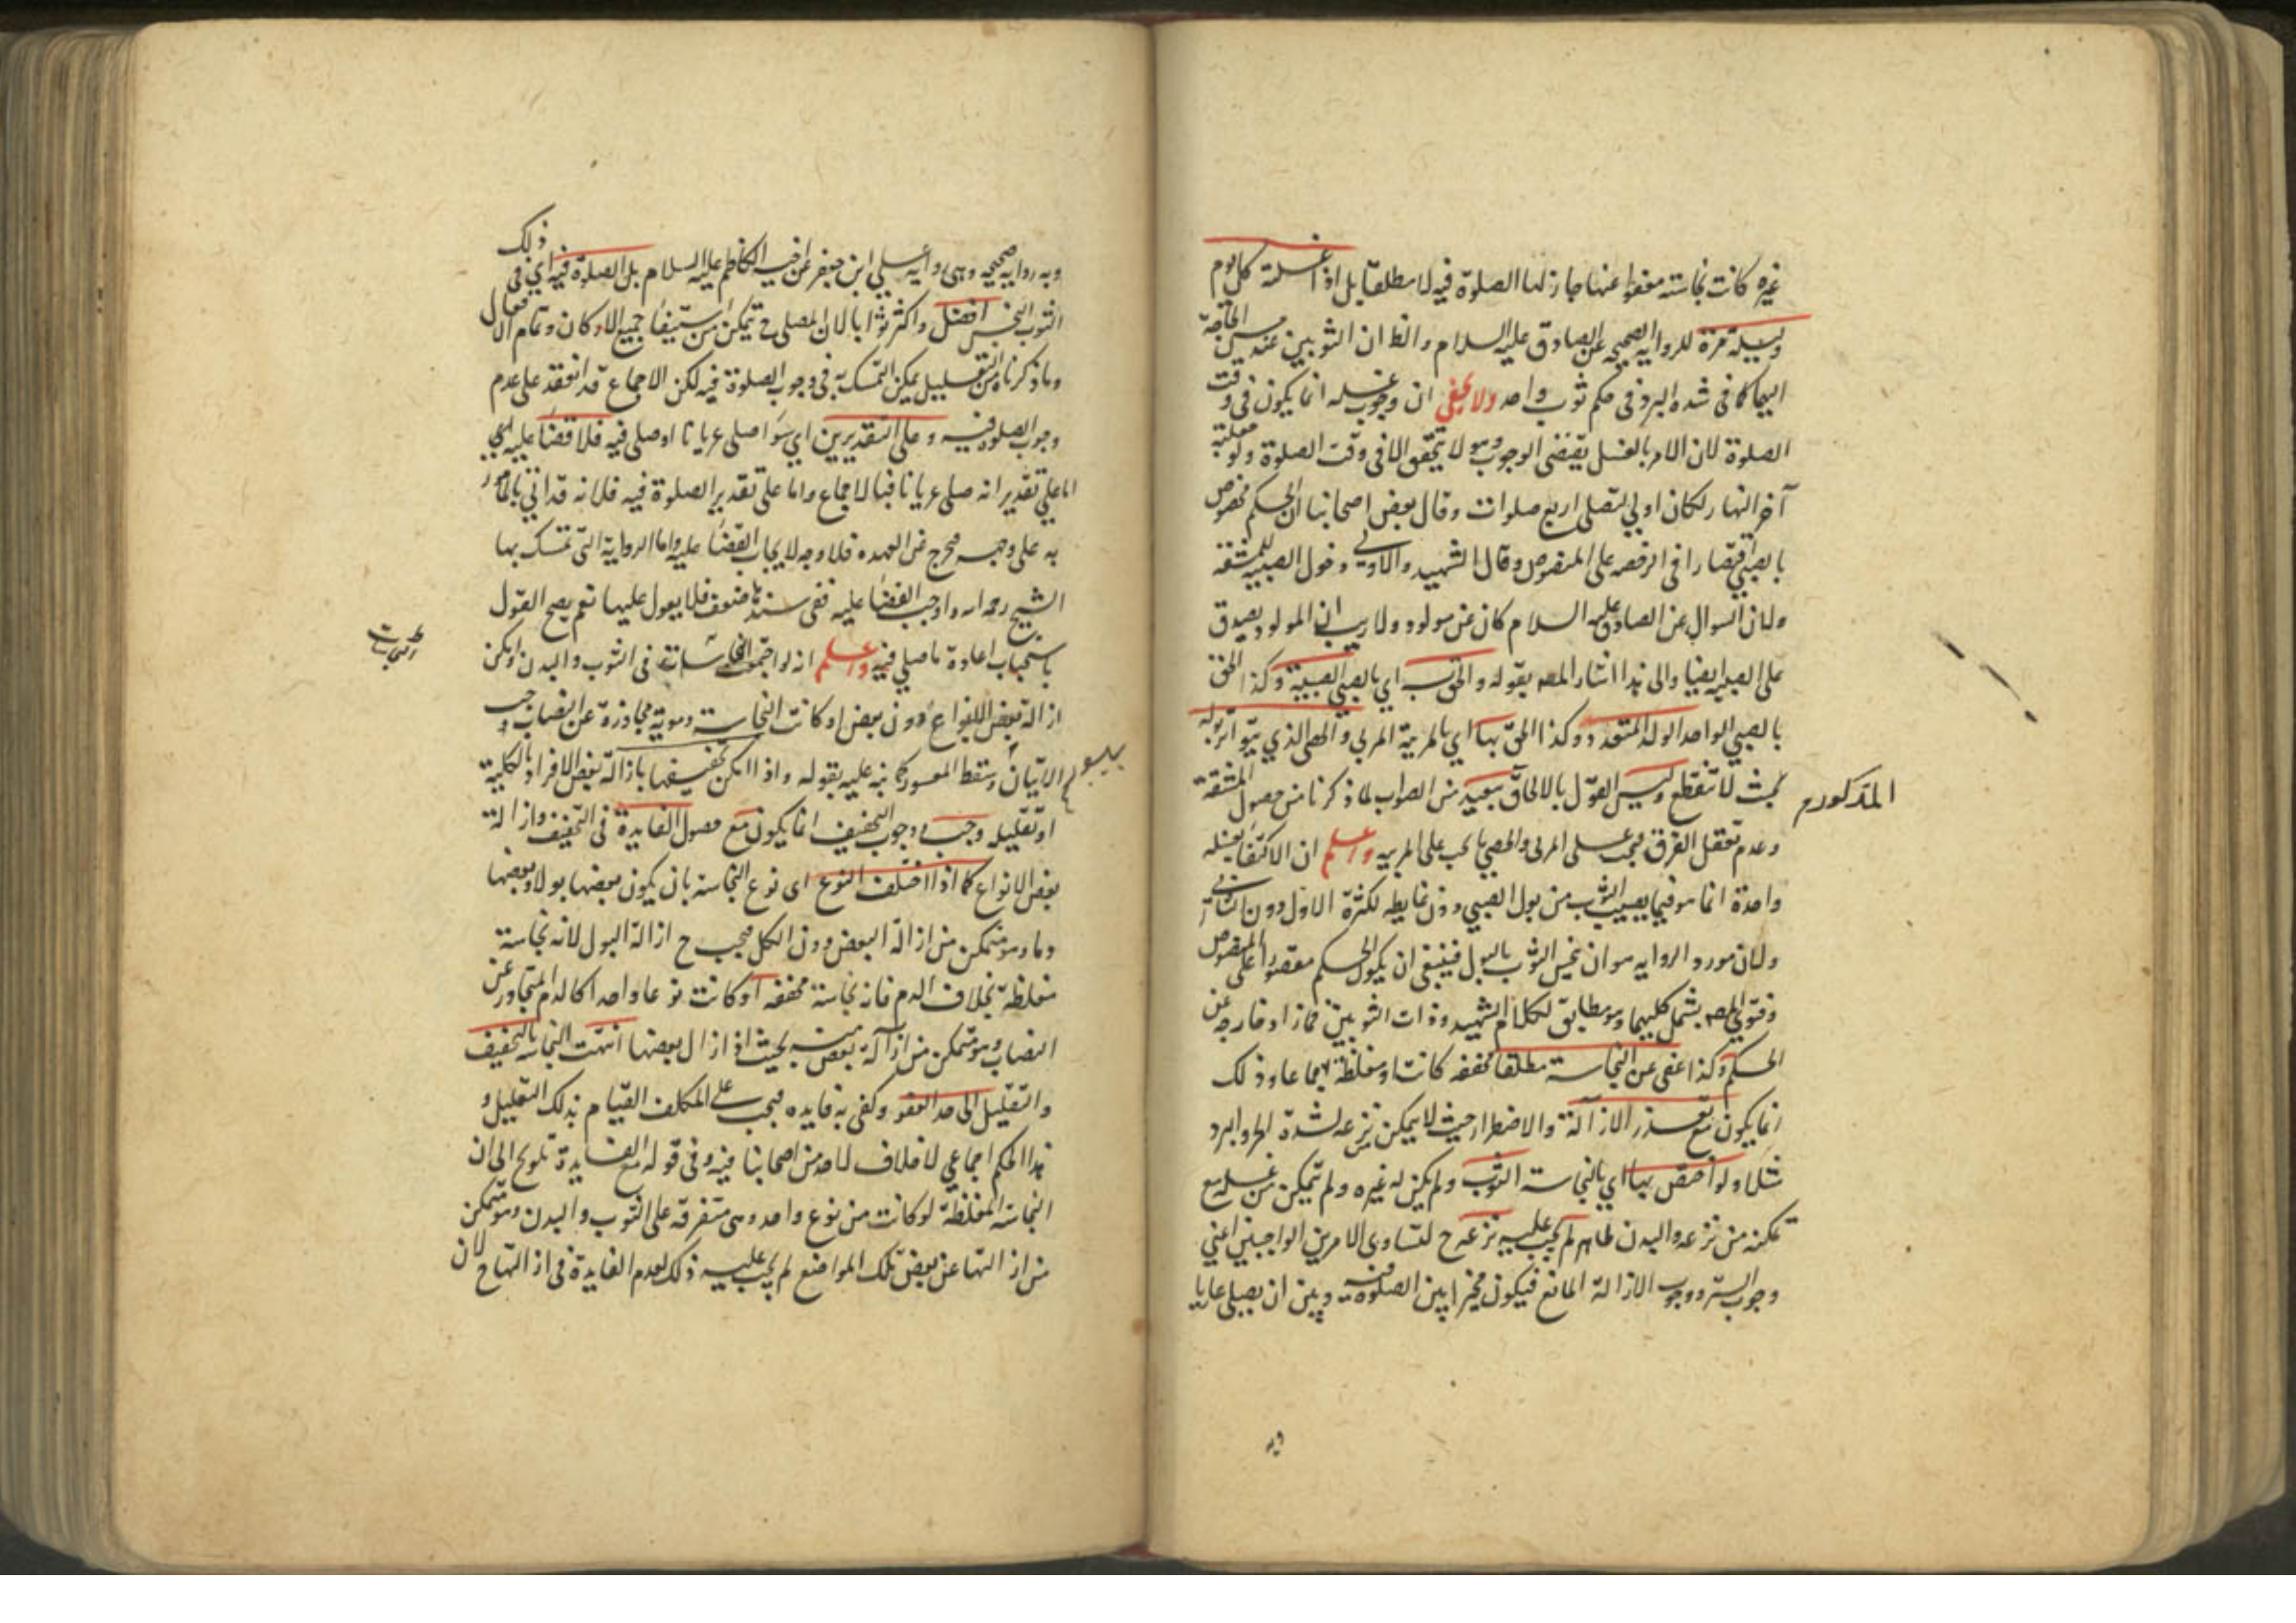 غيره كانت نجاسته معفوا عنها جاز لها الصلوة فيه لا مطلقا بل اذا غسلته كل يوم
وليلة مرة للرواية الصحيحه عن الصادق عليه السلام والظ ان الثوبين عند مس الحاجة
اليهما كما فى شده البرد فى حكم ثوب واحد ولا يخفى ان وجوب غسله انما يكون فى وقت
الصلوة لان الامر بالغسل يقتضى الوجوب وهو لا يتحقق الا فى وقت الصلوة ولو جعلته
آخر النهار لكان اولى لتصلى اربع صلوات وقال بعض اصحابنا ان الحكم مخصوص
بالصبى اقتصارا فى الرخصه على المنصوص وقال الشهيد والاولى دخول الصبية للمشقة
ولان السوال عن الصادق عليه السلام كان عن مولود ولا ريب ان المولود يصدق
على الصبية ايضا والى هذا اشار المصه بقوله والحق به اى بالصبى الصبية وكذا الحق
بالصبى الواحد الولد المتعدد وكذا الحق بها اى بالمربية المربى والخصى الذى يتواتر بوله
بحيث لا ينقطع وليس القول بالالحاق ببعيد من الصواب لما ذكرنا من حصول المشقة
المذكورة
وعدم تعقل الفرق فيجب على المربى والخصى ما يجب على المربيه واعلم ان الاكتفا بغسله
واحدة انما هو فيما يصيب الثوب من بول الصبى دون غايطه لكثرة الاول دون الثانى
ولان مورد الروايه هو ان نجس الثوب بالبول فينبغى ان يكون الحكم مقصورا على المنصوص
وفتوى المصه يشمل كليهما وهو مطابق لكلام الشهيد وذات الثوبين فمازاد خارجه عن
الحكم وكذا عفى عن النجاسة مطلقا مخففه كانت او مغلظة اجماعا وذلك
انما يكون مع تعذر الازالة والاضطرار حيث لا يمكن نزعه لشدة الحر والبرد
مثلا ولو اختص بها اى بالنجاسة الثوب ولم يكن له غيره ولم يتمكن من غسله مع
تمكنه من نزعه والبدن طاهر لم يجب عليه نزعه ح لتساوى الامرين الواجبين اعنى
وجوب الستر ووجوب الازالة المانع فيكون مخيرا بين الصلوة فيه وبين ان يصلى عاريا
وبه
وبه رواية صحيحه وهى رواية على ابن جعفر عن اخيه الكاظم عليه السلام بل الصلوة فيه اى فى ذلك
الثوب النجس افضل واكثر ثوابا لان المصلى ح تمكن من استيفا جميع الاركان وتمام الافعال
وما ذكرناه من التعليل يمكن التمسك به فى وجوب الصلوة فيه لكن الاجماع قد انعقد على عدم
وجوب الصلوة فيه وعلى التقديرين اى سوا صلى عريانا او صلى فيه فلا قضا عليه
اما على تقدير انه صلى عريانا فبالاجماع واما على تقدير الصلوة فيه فلانه قد اتى بالمامور
به على وجه مخرج عن العهده فلا وجه لايجاب القضا عليه واما الرواية التى تمسك بها
الشيخ رحمه الله واوجب القضا عليه ففى سندها ضعف فلا يعول عليها نعم يصح القول
باستحباب اعادة ما صلى فيه واعلم انه لو اجتمعت النجاسات فى الثوب والبدن وامكن
ازالة بعض الانواع دون بعض او كانت النجاسة دموية متجاوزة عن النصاب وجب
الاتيان وسقط المعسور كما نبه عليه بقوله واذا امكن تخفيفها بازالة بعض الافراد بالكلية
او تقليله وجب ووجوب التخفيف انما يكون مع حصول الفايدة فى التخفيف وازالة
بعض الانواع كما اذا اختلف النوع اى نوع النجاسة بان يكون بعضها بولا وبعضها
دما وهو متمكن من ازالة البعض دون الكل فيجب ح ازالة البول لانه نجاسة
مغلظة بخلاف الدم فانه نجاسة مخففه او كانت نوعا واحدا كالدم المتجاوز عن
النصاب وهو متمكن من ازالة بعض منه بحيث اذا زال بعضها انتهت النجاسة بالتخفيف
والتقليل الى حد العفو وكفى به فايده فيجب على المكلف القيام بذلك التقليل و
هذا الحكم اجماعى لا خلاف لاحد من اصحابنا فيه وفى قوله مع الفايدة تلويح الى ان
النجاسة المغلظة لو كانت من نوع واحد وهى متفرقه على الثوب والبدن وهو متمكن
من ازالتها عن بعض تلك المواضع لم يجب عليه ذلك لعدم الفايدة فى ازالتها ح لان